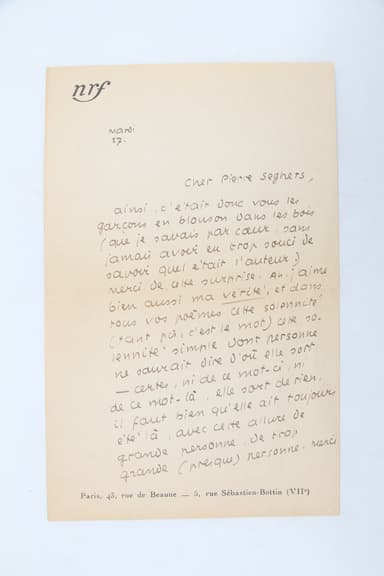 nrf
mardi
27.
Cher Pierre Seghers,
ainsi, c'était donc vous les
garçons en blouson dans les bois
(que je savais par cœur, sans
jamais avoir eu trop souci de
savoir quel était l'auteur)
merci de cette surprise. Ah, j'aime
bien aussi ma vérité, et dans
tous vos poèmes cette solennité
(tant pis, c'est le mot) cette so-
lennité simple dont personne
ne saurait dire d'où elle sort
— certes, ni de ce mot-ci, ni
de ce mot-là, elle sort de rien,
il faut bien qu'elle ait toujours
été là, avec cette allure de
grande personne, de trop
grande (presque) personne. Merci
Paris, 43, rue de Beaune — 5, rue Sébastien-Bottin (VIIe)